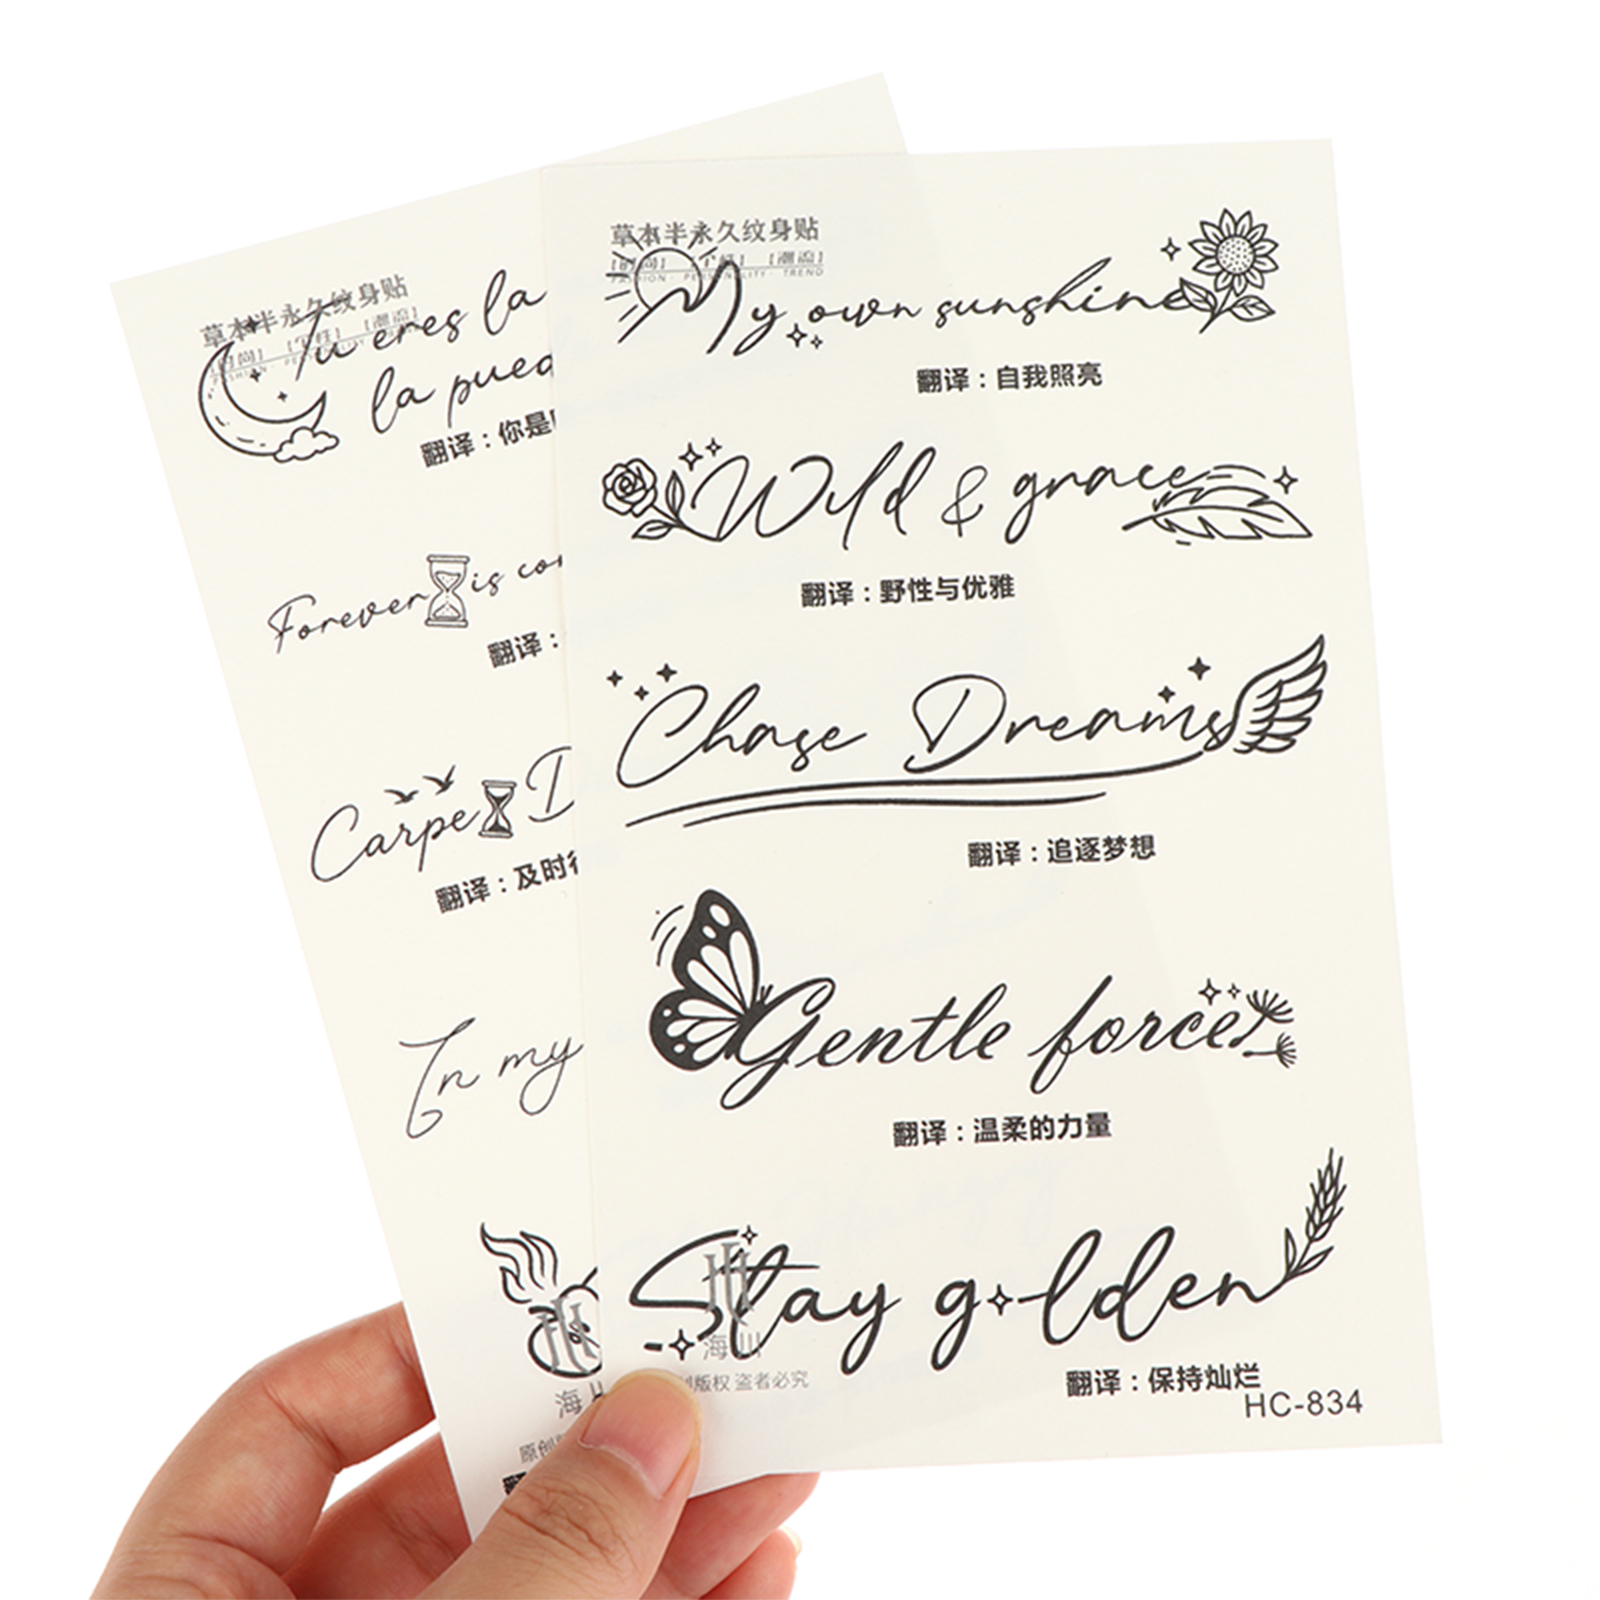 草本半永久纹身贴
【时尚】 【个性】 【潮流】
FASHION · PERSONALITY · TREND
Tu eres la
la pued
翻译：你是
Forever is con
翻译：
Carpe D
翻译：及时行
In my
海川
原创
草本半永久纹身贴
【时尚】 【个性】 【潮流】
FASHION · PERSONALITY · TREND
My own sunshine
翻译：自我照亮
Wild & grace
翻译：野性与优雅
Chase Dreams
翻译：追逐梦想
Gentle force
翻译：温柔的力量
Stay golden
海川
版权 盗者必究
翻译：保持灿烂
HC-834